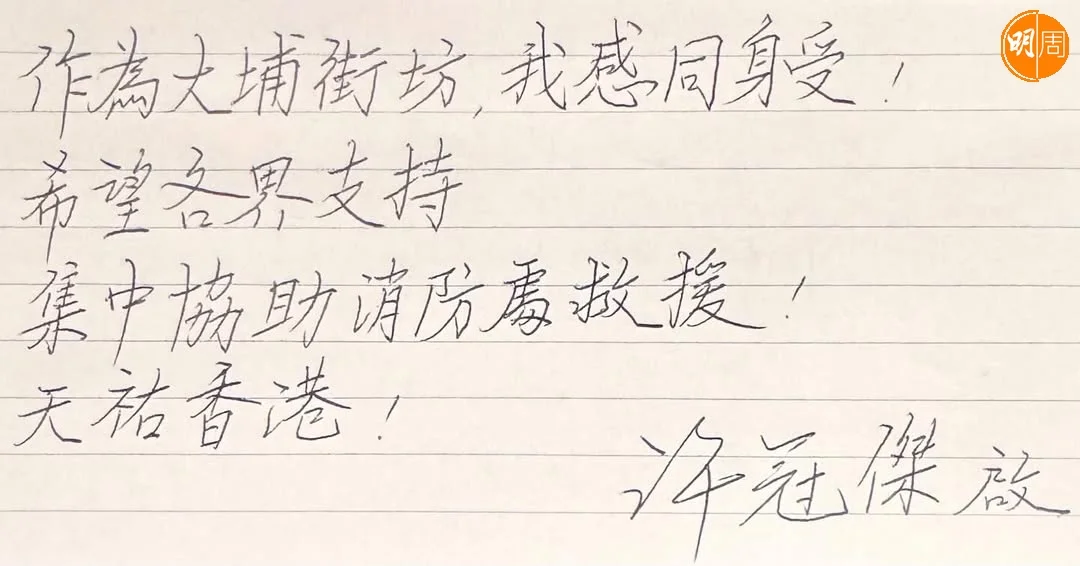 明周
作為大埔街坊,我感同身受!
希望各界支持
集中協助消防處救援!
天祐香港!
許冠傑啟